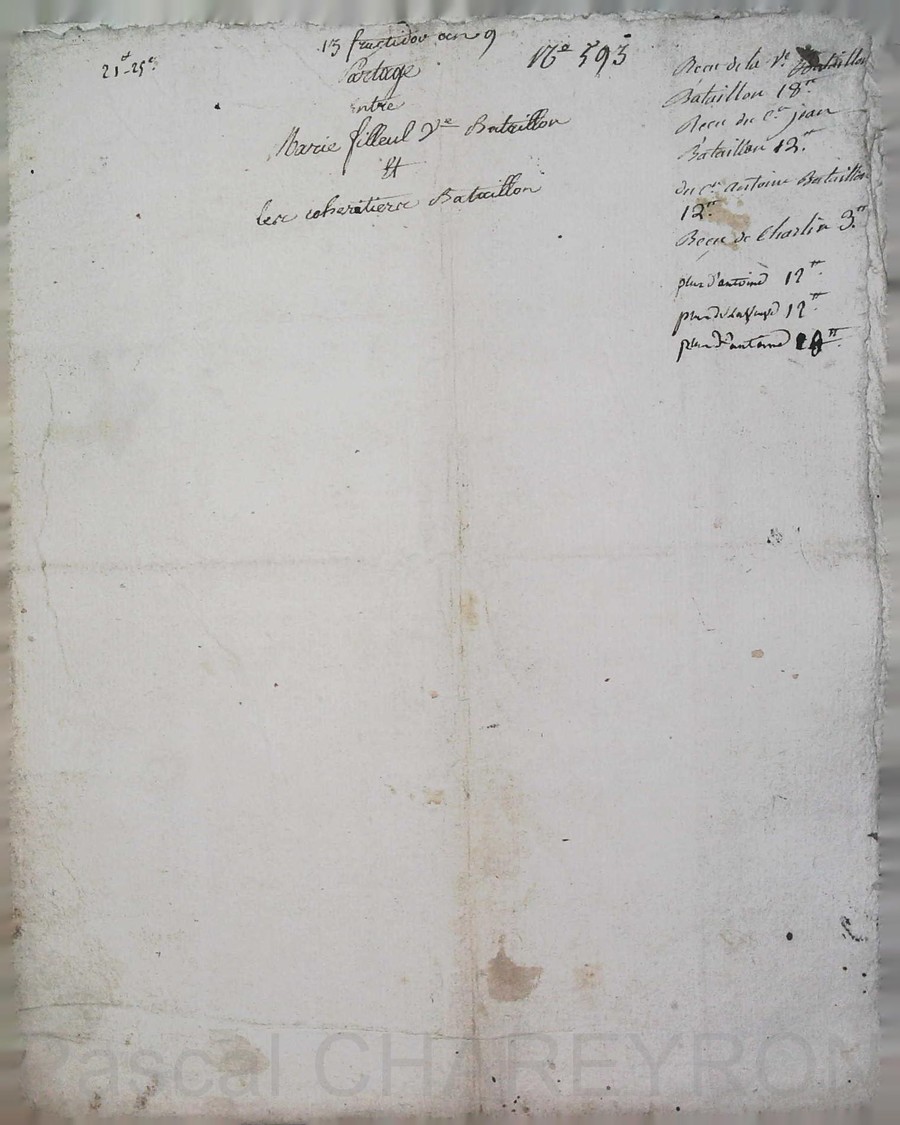 21d-25c
13 fructidor an 9
Partage
entre
Marie filleul Ve Bataillon
Et
les coheritiers Bataillon
No 593
Recu de la Ve Bataillon
Bataillon 18tt
Recu du Cen jean
Bataillon 12tt
du Cen Antoine Bataillon
12tt
Recu de Charlin 3tt
plus d'antoine 12tt
plus de 12tt
plus d'antoine
Pascal CHAREYRON